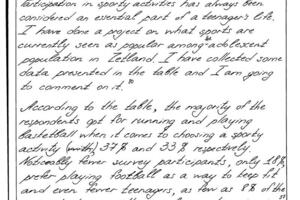 participation in sporty activities has always been
considered an essential part of a teenager's life.
I have done a project on what sports are
currently seen as popular among adolescent
population in Zetland. I have collected some
data presented in the table and I am going
to comment on it.
According to the table, the majority of the
respondents got for running and playing
basketball when it comes to choosing a sporty
activity (with) 37% and 33% respectively.
Notionally fewer survey participants, only 18%
prefer playing football as a way to keep fit
and even fewer teenagers, as few as 8% of the